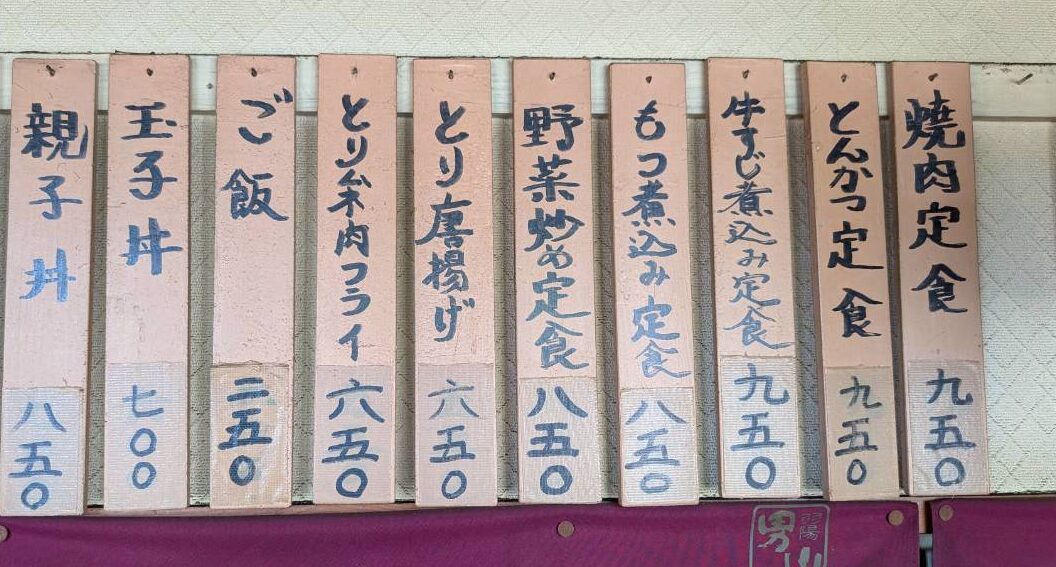 焼肉定食 九五〇
とんかつ定食 九五〇
牛すじ煮込み定食 九五〇
もつ煮込み定食 八五〇
野菜炒め定食 八五〇
とり唐揚げ 六五〇
とり笨肉フライ 六五〇
ご飯 二五〇
玉子丼 七〇〇
親子丼 八五〇
羽陽
男山